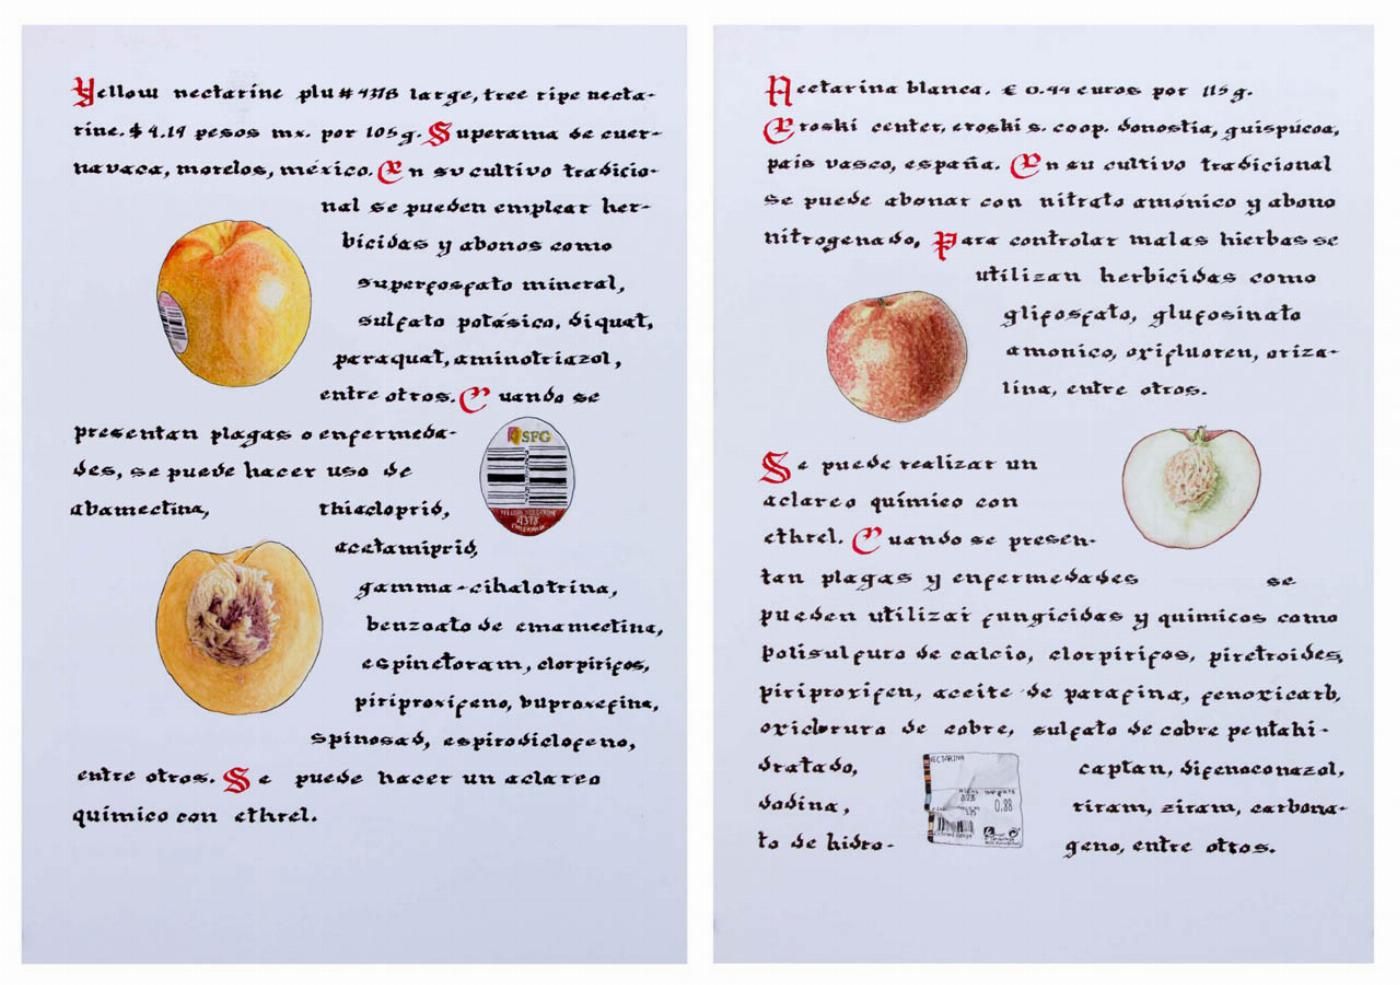 Yellow nectarine plu # 4378 large, tree ripe necta-
rine. $ 4.19 pesos mx. por 105 g. Superama de cuer-
navaca, morelos, méxico. En su cultivo tradicio-
nal se pueden emplear her-
bicidas y abonos como
superfosfato mineral,
sulfato potásico, diquat,
paraquat, aminotriazol,
entre otros. Cuando se
presentan plagas o enfermeda-
des, se puede hacer uso de
abamectina, thiacloprid,
acetamiprid,
gamma-cihalotrina,
benzoato de emamectina,
espinetoram, clorpirifos,
piriproxifeno, buproxefina,
spinosad, espirodiclofeno,
entre otros. Se puede hacer un aclareo
químico con ethrel.
SFG
YELLOW NECTARINE
4378
Nectarina blanca. € 0.44 euros por 115 g.
Eroski center, eroski s. coop. donostia, guispúcoa,
país vasco, españa. En su cultivo tradicional
se puede abonar con nitrato amónico y abono
nitrogenado, Para controlar malas hierbas se
utilizan herbicidas como
glifosfato, glufosinato
amonico, oxifluoren, oriza-
lina, entre otros.
Se puede realizar un
aclareo químico con
ethrel. Cuando se presen-
tan plagas y enfermedades se
pueden utilizar fungicidas y químicos como
polisulfuro de calcio, clorpirifos, piretroides,
piriproxifen, aceite de parafina, fenoxicarb,
oxicloruro de cobre, sulfato de cobre pentahi-
dratado, captan, difenoconazol,
dodina, tiram, ziram, carbona-
to de hidro- geno, entre otros.
NECTARINA
0.88